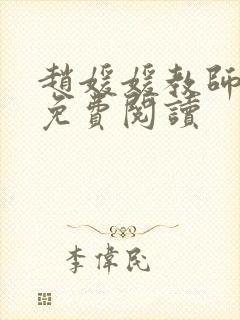 趙媛媛教師
免費閱讀
李偉民